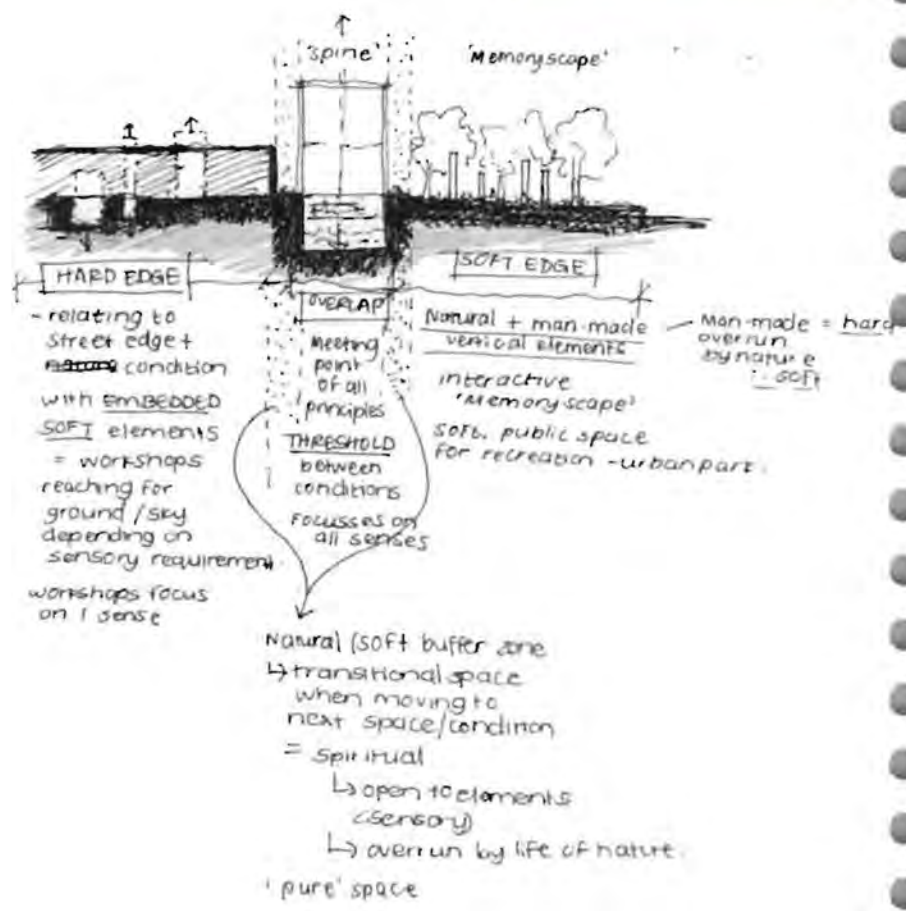 'spine'
'Memoryscape'
HARD EDGE
- relating to
street edge +
condition
with EMBEDDED
SOFT elements
= workshops
reaching for
ground / sky
depending on
sensory requirement.
workshops focus
on 1 sense
OVERLAP
Meeting
point
of all
principles
THRESHOLD
between
conditions
Focusses on
all senses
SOFT EDGE
Natural + man-made
vertical elements
interactive
'Memoryscape'
soft, public space
for recreation - urban park.
Man-made = hard
overrun
by nature
∴ soft
Natural (soft buffer zone
↳ transitional space
when moving to
next space/condition
= Spiritual
↳ open to elements
(sensory)
↳ overrun by life of nature.
'pure' space